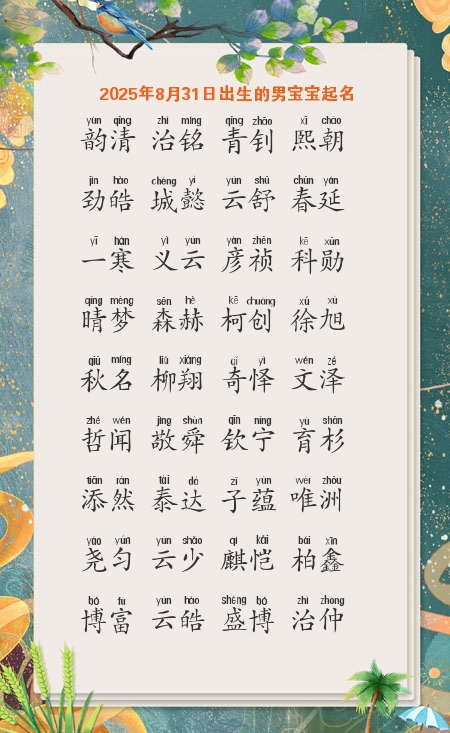 2025年8月31日出生的男宝宝起名
yùn qīng zhì míng qīng zhāo xī cháo
韵清 治铭 青钊 熙朝
jìn hào chéng yì yún shū chūn yán
劲皓 城懿 云舒 春延
yī hán yì yún yàn zhēn kē xūn
一寒 义云 彦祯 科勋
qíng mèng sēn hè kē chuàng xú xù
晴梦 森赫 柯创 徐旭
qiū míng liǔ xiáng qí yì wén zé
秋名 柳翔 奇怿 文泽
zhé wén jìng shùn qīn níng yù shān
哲闻 敬舜 钦宁 育杉
tiān rán tài dá zǐ yùn wéi zhōu
添然 泰达 子蕴 唯洲
yáo yún yún shǎo qí kǎi bǎi xīn
尧匀 云少 麒恺 柏鑫
bó fù yún hào shèng bó zhì zhòng
博富 云皓 盛博 治仲